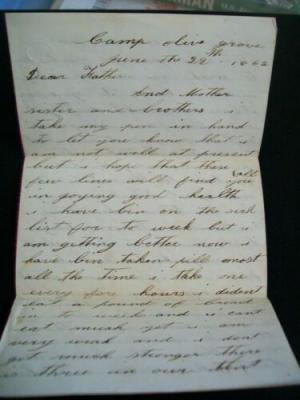 Camp oliv grove
June the 22th 1862
Dear Father
and Mother
sister and brothers i
take my pen in hand
to let you know that i
am not well at present
but i hope that these
few lines will find you all
in joying good health
i have bin on the sick
list for to week but i
am getting better now i
have bin taken pill onost
all the time i take one
every for hours i dident
eat a pound of bread
in to weeks and i cant
eat much yet i am
very weak and i dont
get much stronger there
is three in our